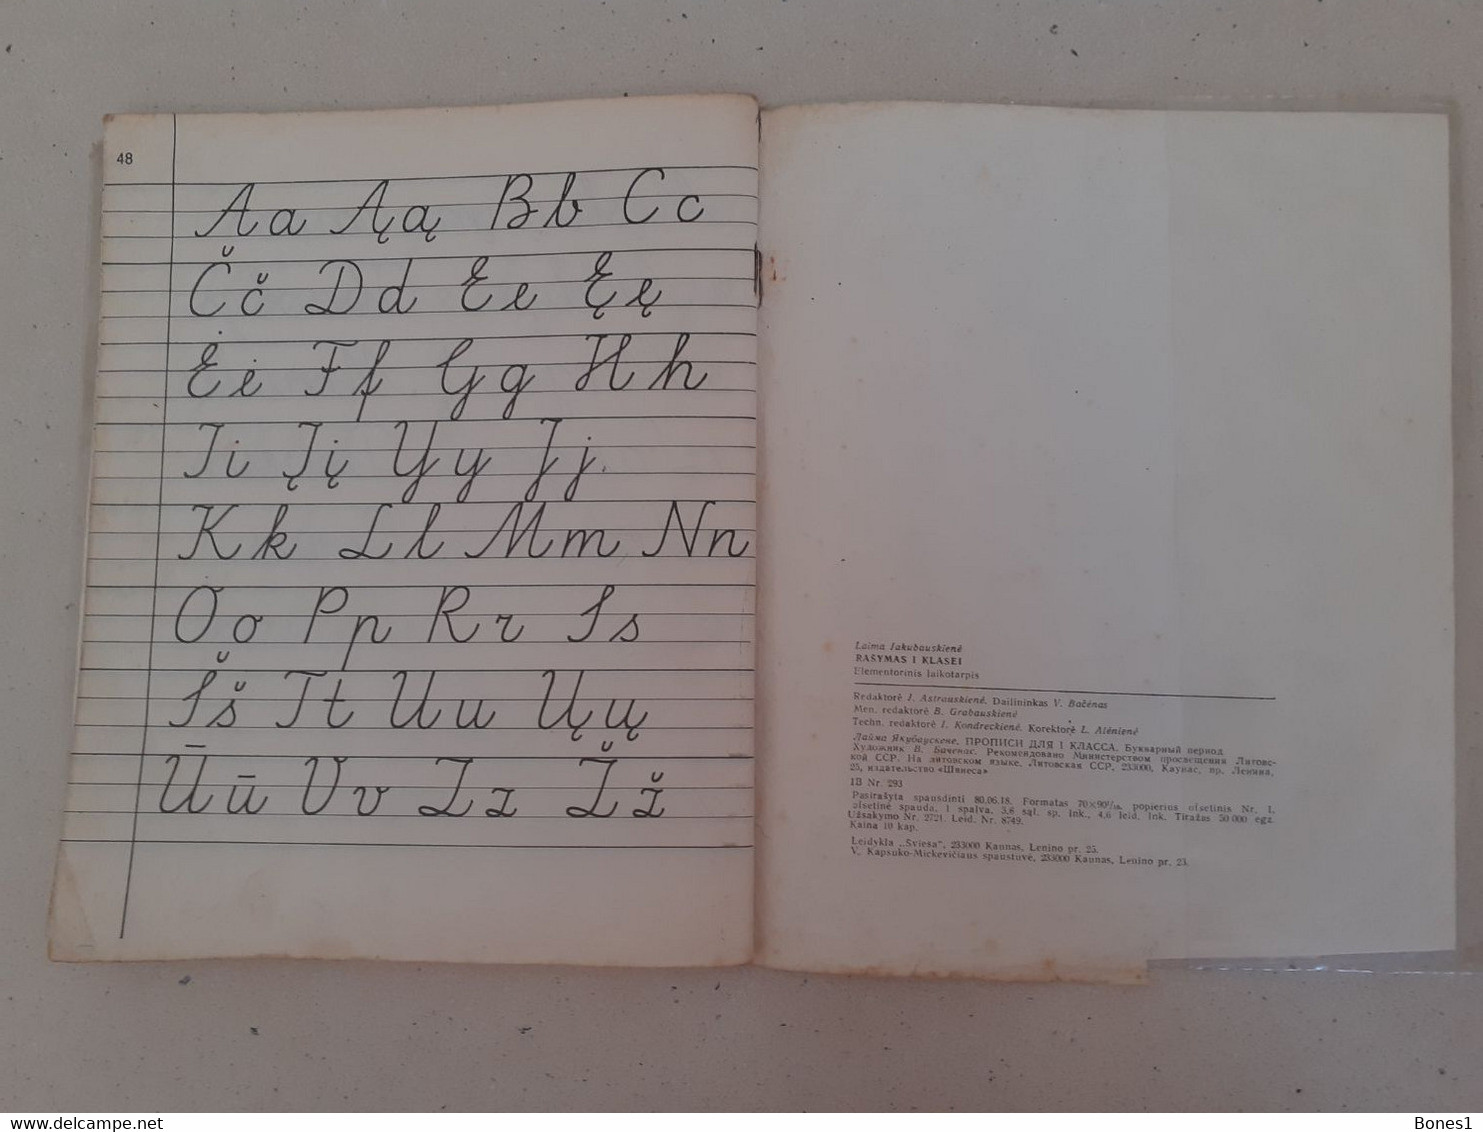 48
Aa Ąą Bb Cc
Čč Dd Ee Ęę
Ėė Ff Gg Hh
Ii Įį Yy Jj
Kk Ll Mm Nn
Oo Pp Rr Ss
Šš Tt Uu Ųų
Ūū Vv Zz Žž
Laima Jakubauskienė
RAŠYMAS I KLASEI
Elementorinis laikotarpis
Redaktorė J. Astrauskienė. Dailininkas V. Bačėnas
Men. redaktorė B. Grabauskienė
Techn. redaktorė I. Kondreckienė. Korektorė L. Alėnienė
Лайма Якубаускене. ПРОПИСИ ДЛЯ I КЛАССА. Букварный период
Художник В. Баченас. Рекомендовано Министерством просвещения Литовс-
кой ССР. На литовском языке. Литовская ССР, 233000, Каунас, пр. Ленина,
25, издательство «Швиеса»
IB Nr. 293
Pasirašyta spausdinti 80.06.18. Formatas 70×90¹/₁₆, popierius ofsetinis Nr. 1,
ofsetinė spauda, 1 spalva. 3,6 sąl. sp. lnk., 4,6 leid. lnk. Tiražas 50 000 egz.
Užsakymo Nr. 2721. Leid. Nr. 8749.
Kaina 10 kap.
Leidykla „Šviesa“, 233000 Kaunas, Lenino pr. 25.
V. Kapsuko-Mickevičiaus spaustuvė, 233000 Kaunas, Lenino pr. 23.
www.delcampe.net
Bones1